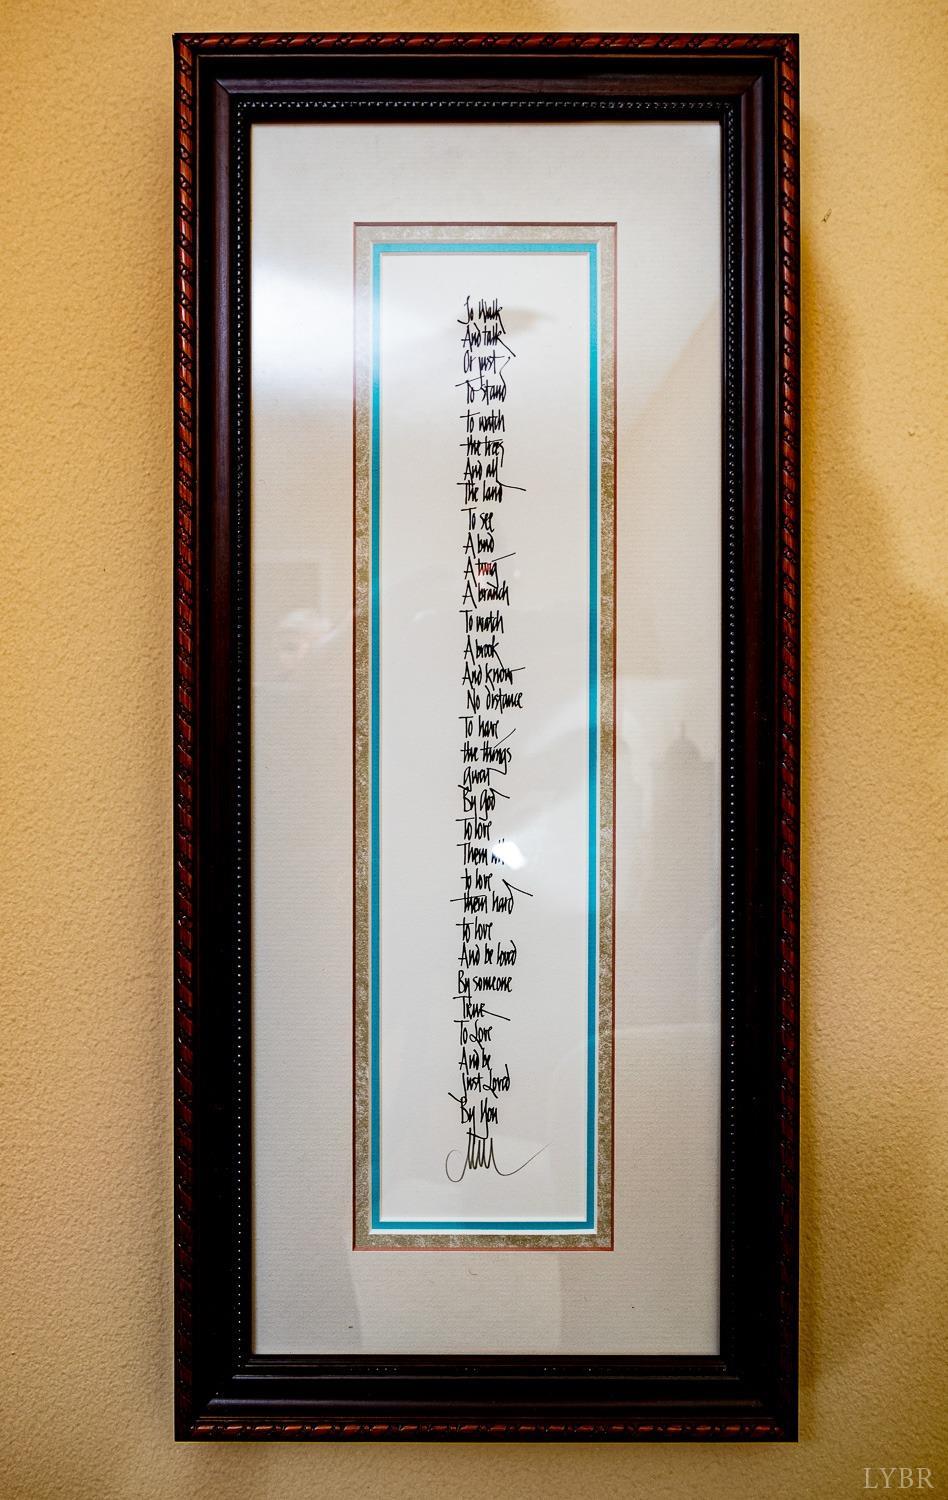 To Walk
And talk
Or just
To stand
to watch
the trees
And all
The land
To see
A bird
A twig
A branch
To watch
A brook
And know
No distance
To have
the things
given
By god
To love
Them
to love
them hard
to love
And be loved
By someone
True
To Love
And be
Just Loved
By You
LYBR